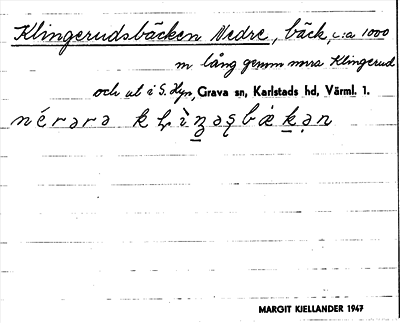 Klingerudsbäcken Nedre, bäck, c:a 1000
m lång genom norra Klingerud
och ut i S. Hyn, Grava sn, Karlstads hd, Värml. 1.
MARGIT KJELLANDER 1947